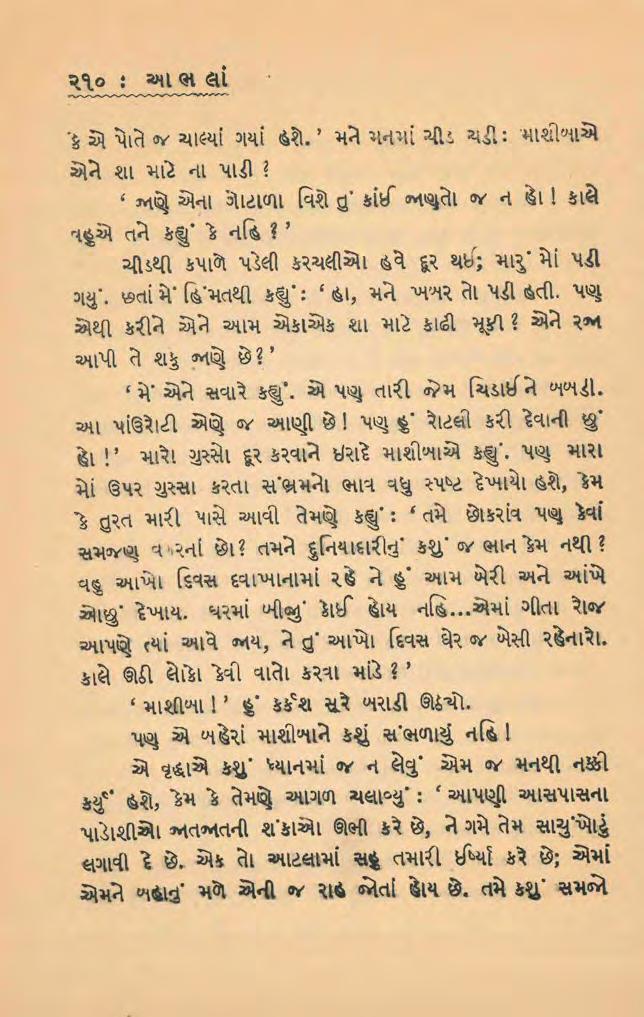 ૨૧૦ : આભલાં
કે એ પોતે જ ચાલ્યાં ગયાં હશે.’ મને મનમાં ચીડ ચડી: માશીબાએ
એને શા માટે ના પાડી ?
‘ જાણે એના ગોટાળા વિશે તું કાંઈ જાણતો જ ન હો ! કાલે
વહુએ તને કહ્યું કે નહિ ?’
ચીડથી કપાળે પડેલી કરચલીઓ હવે દૂર થઈ; મારું મોં પડી
ગયું. છતાં મેં હિંમતથી કહ્યું : ‘ હા, મને ખબર તો પડી હતી. પણ
એથી કરીને એને આમ એકાએક શા માટે કાઢી મૂકી ? એને રજા
આપી તે શકુ જાણે છે?’
‘ મેં એને સવારે કહ્યું. એ પણ તારી જેમ ચિડાઈને બબડી.
આ પાંઉરોટી એણે જ આણી છે ! પણ હું રોટલી કરી દેવાની છું
હો !’ મારો ગુસ્સો દૂર કરવાને ઇરાદે માશીબાએ કહ્યું. પણ મારા
મોં ઉપર ગુસ્સા કરતા સંભ્રમનો ભાવ વધુ સ્પષ્ટ દેખાયો હશે, કેમ
કે તુરત મારી પાસે આવી તેમણે કહ્યું : ‘ તમે છોકરાંવ પણ કેવાં
સમજણ વગરનાં છો ? તમને દુનિયાદારીનું કશું જ ભાન કેમ નથી ?
વહુ આખો દિવસ દવાખાનામાં રહે ને હું આમ બેરી અને આંખે
ઓછું દેખાય. ઘરમાં બીજું કોઈ હોય નહિ...એમાં ગીતા રોજ
આપણે ત્યાં આવે જાય, ને તું આખો દિવસ ઘેર જ બેસી રહેનારો.
કાલે ઊઠી લોકો કેવી વાતો કરવા માંડે ?’
‘ માશીબા !’ હું કર્કશ સૂરે બરાડી ઊઠ્યો.
પણ એ બહેરાં માશીબાને કશું સંભળાયું નહિ !
એ વૃદ્ધાએ કશું ધ્યાનમાં જ ન લેવું એમ જ મનથી નક્કી
કર્યું હશે, કેમ કે તેમણે આગળ ચલાવ્યું : ‘ આપણી આસપાસના
પાડોશીઓ જાતજાતની શંકાઓ ઊભી કરે છે, ને ગમે તેમ સાચુંખોટું
લગાવી દે છે. એક તો આટલામાં સહુ તમારી ઈર્ષ્યા કરે છે; એમાં
એમને બહાનું મળે એની જ રાહ જોતાં હોય છે. તમે કશું સમજો